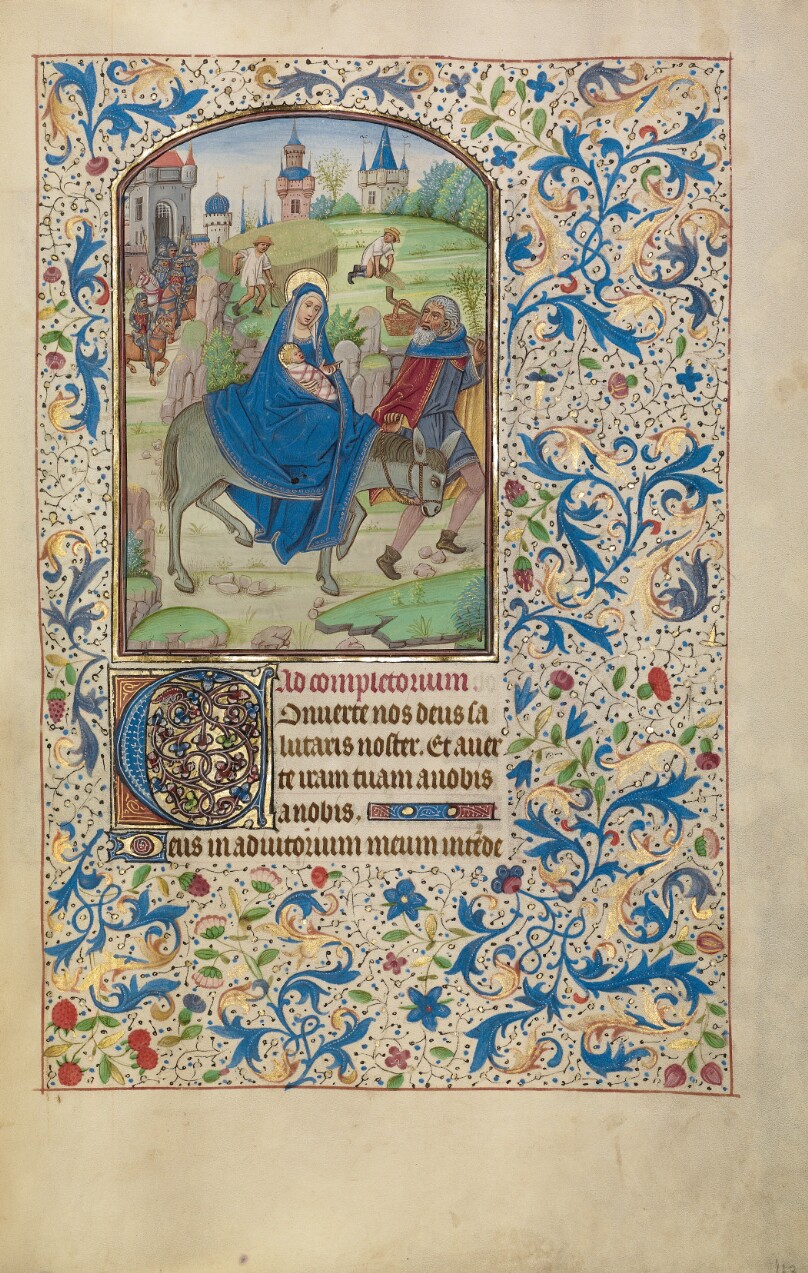 Ad completorium.
Onuerte nos deus sa
lutaris noster. Et auer
te iram tuam anobis
anobis.
eus in adiutorium meum intede